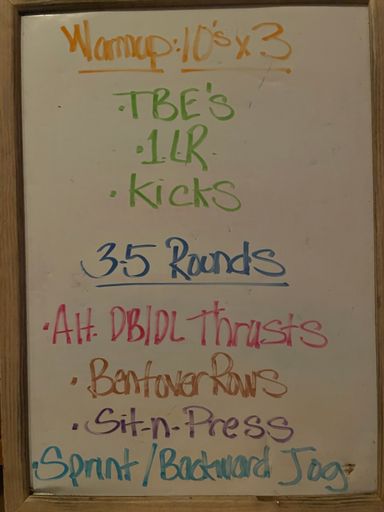 Warmup: 10's x 3
·TBE's
·1LR
·Kicks
3-5 Rounds
·AH DB/DL Thrusts
·Bentover Rows
·Sit-n-Press
·Sprint/Backward Jog